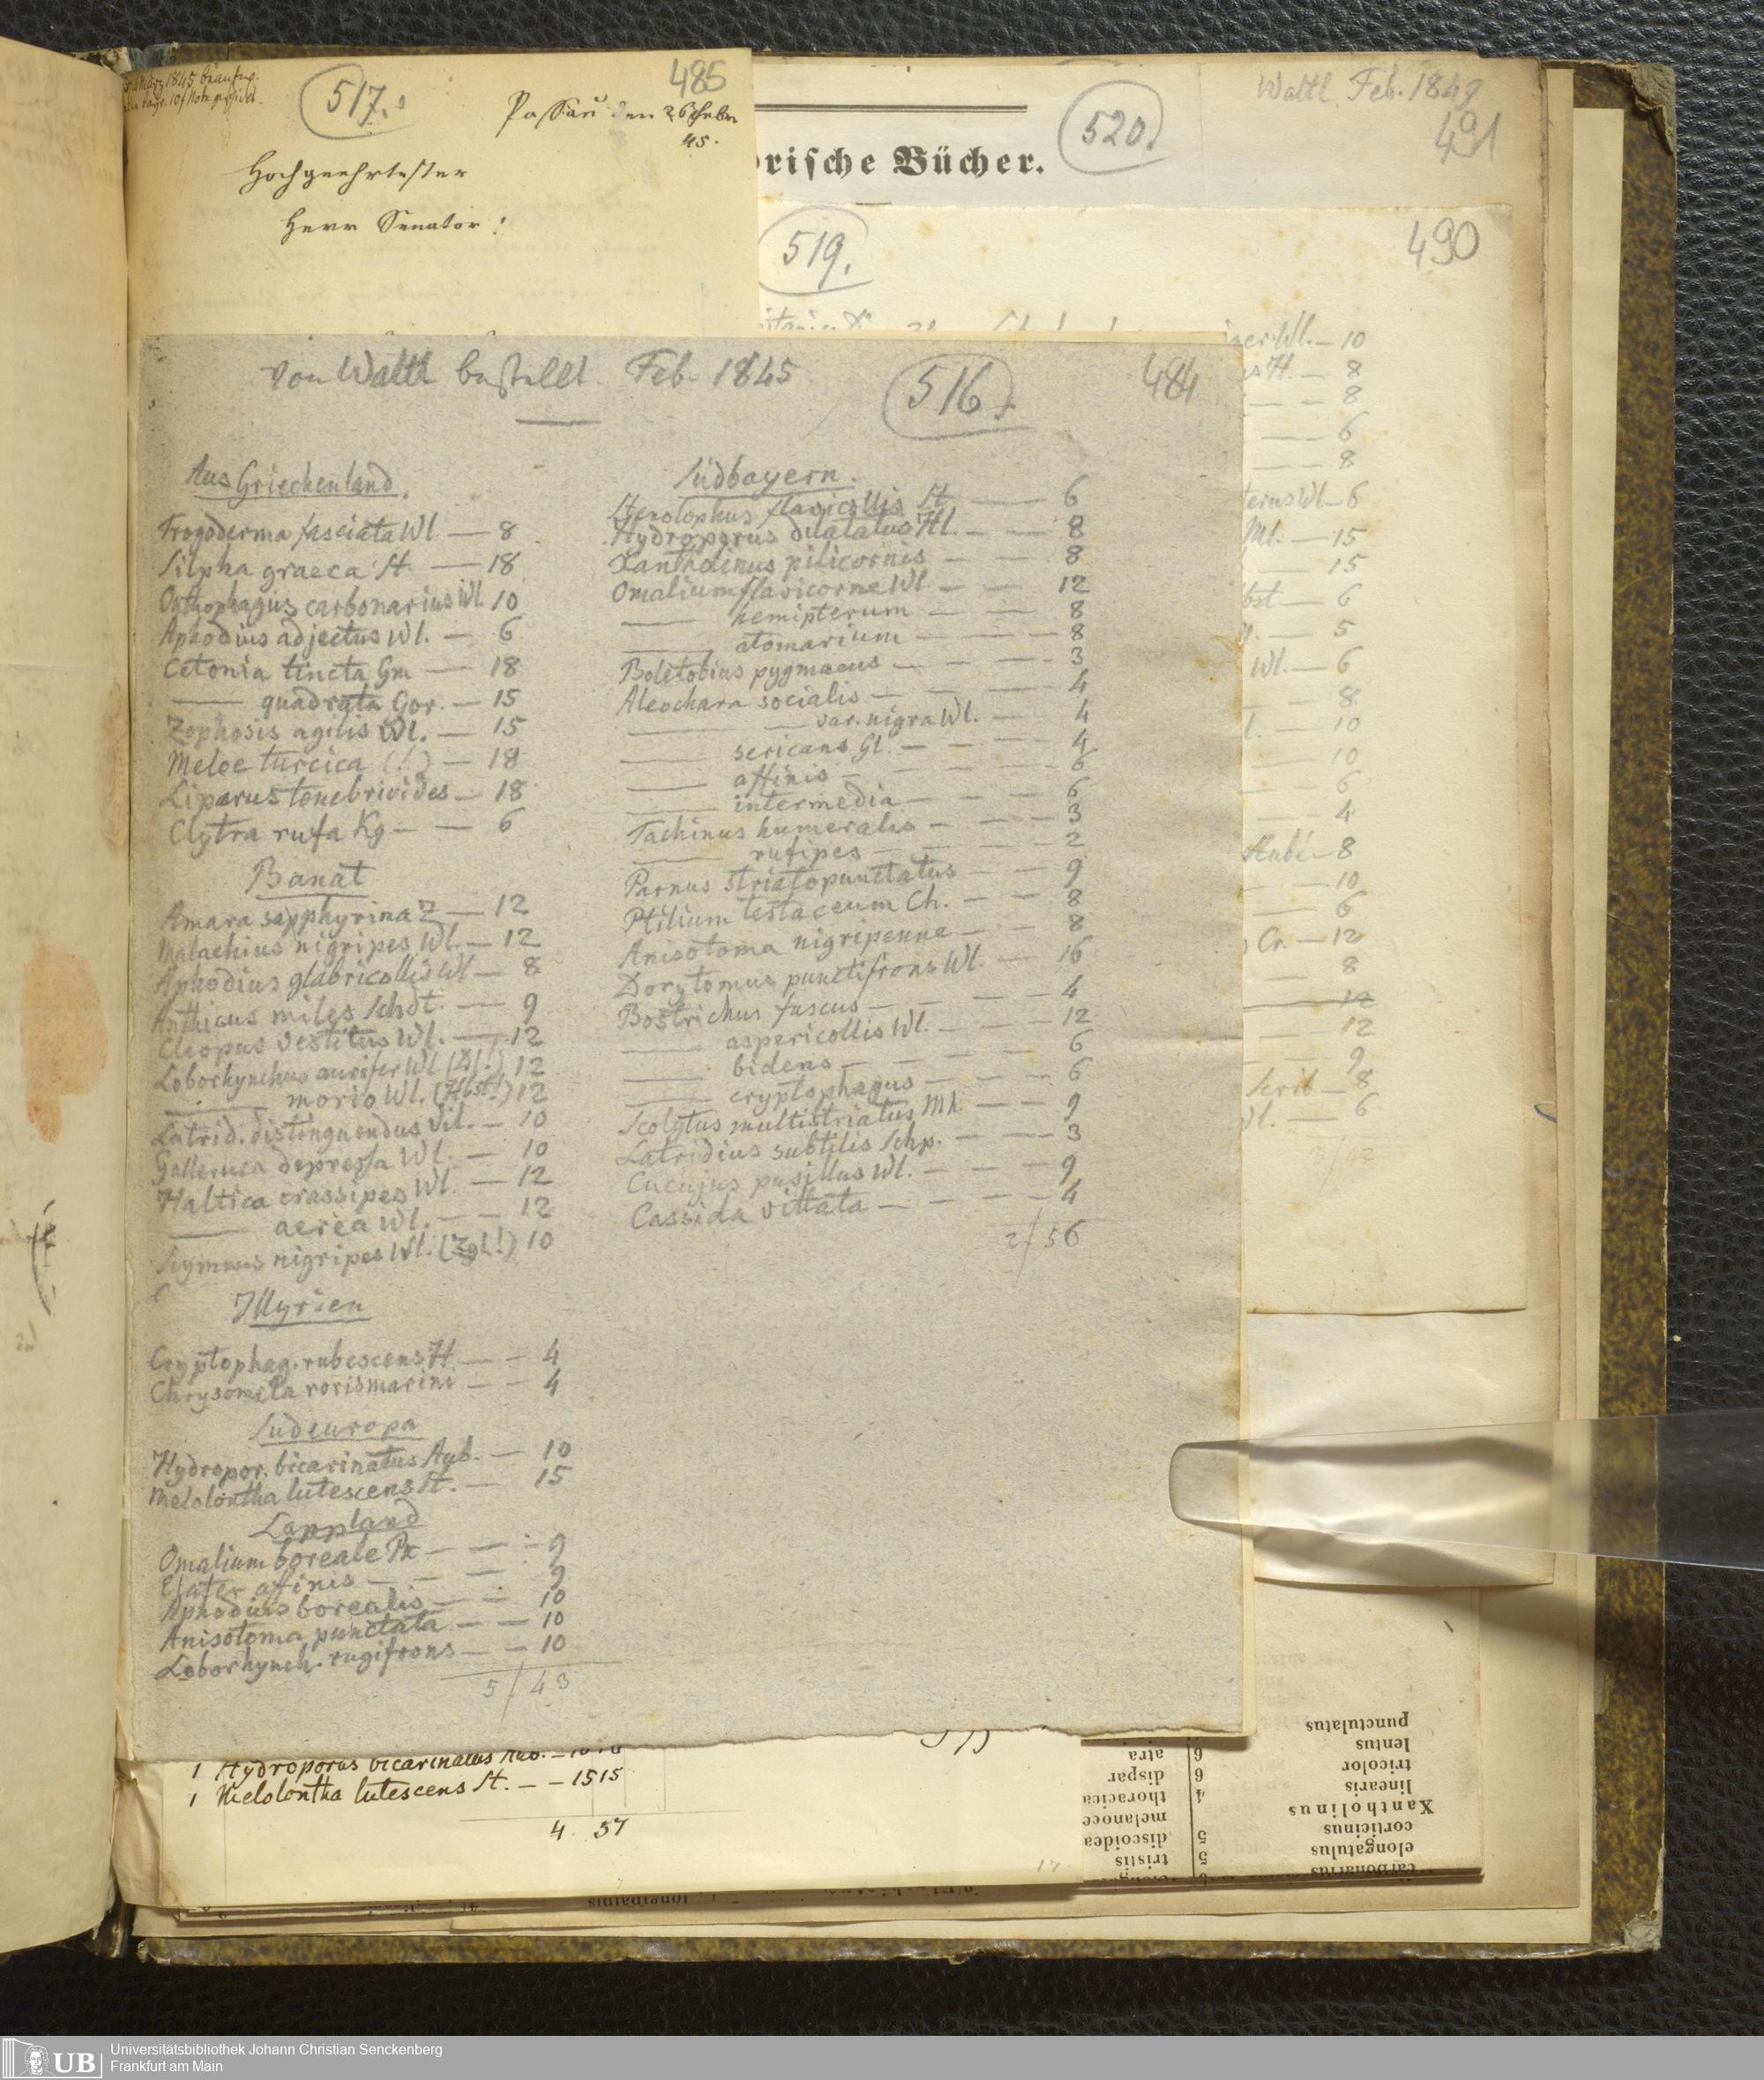 517.
485
Passau den 26 Febr
45.
Hochgeehrtester
Herr Senator!
Waltl Feb. 1849
491
520.
orische Bücher.
519.
490
von Waltl bestellt Feb. 1845
516.
484
Aus Griechenland.
Trogoderma fasciata Wl — 8
Silpha graeca St. — 18
Onthophagus carbonarius Wl. 10
Aphodius adjectus Wl. — 6
Cetonia tincta Gm — 18
— quadrata Gor. — 15
Zophosis agilis Wl. — 15
Meloe turcica (!) — 18
Liparus tenebrioides — 18
Clytra rufa Kg — — 6
Banat
Amara sapphyrina Z — 12
Malachius nigripes Wl. — 12
Aphodius glabricollis Wl — 8
Anthicus miles Schdt. — 9
Cleopus vestitus Wl. — 12
Loborhynchus aurifer Wl (Dj!) 12
— morio Wl. (Hbst!) 12
Latrid. distinguendus Vil. — 10
Galleruca depressa Wl. — 10
Haltica crassipes Wl. — 12
— aerea Wl. — — 12
Scymnus nigripes Wl. (Zgl!) 10
Illyrien
Cryptophag. rubescens H. — — 4
Chrysomela rorismarini — — 4
Südeuropa
Hydropor. bicarinatus Aub. — 10
Melolontha lutescens St. — 15
Lappland
Omalium boreale Pk — — — 9
Elater affinis — — — 9
Aphodius borealis — — 10
Anisotoma punctata — — 10
Loborhynch. rugifrons — — 10
5/43
Südbayern.
Stenolophus flavicollis St. — 6
Hydroporus dilatatus Hl. — — 8
Xantholinus pilicornis — — 8
Omalium flavicorne Wl — — 12
— hemipterum — — 8
— atomarium — — — 8
Boletobius pygmaeus — — — 3
Aleochara socialis — — — 4
— — var. nigra Wl. — 4
— sericans Gl. — — — 4
— affinis — — — — 6
— intermedia — — — 6
Tachinus humeralis — — — 3
— rufipes — — — — 2
Parnus striatopunctatus — — 9
Ptilium testaceum Ch. — — 8
Anisotoma nigripenne — — 8
Dorytomus punctifrons Wl. — 16
Bostrichus fuscus — — — — 4
— aspericollis Wl. — — — 12
— bidens — — — — 6
— cryptophagus — — — 6
Scolytus multistriatus Mh — — 9
Latridius subtilis Schp. — — — 3
Cucujus pusillus Wl. — — — 9
Cassida vittata — — — — 4
2/56
Wl. — 10
H. — 8
— — 8
— — 6
— — 8
Wl — 6
Ml. — 15
— 15
bst — 6
— 5
Wl. — 6
— 8
— 10
— 10
— 6
— 4
— 8
— 10
— 6
Cr. — 12
— 8
12
12
9
8
6
1 Hydroporus bicarinatus Aub. — 10 10
1 Melolontha lutescens St. — — 15 15
4. 57
punctulatus
lentus
tricolor
linearis
Xantholinus
corticinus
elongatulus
carbonarius
6 atra
6 dispar
4 thoracica
melanoce
5 discoidea
5 tristis
longipennis
UB
Universitätsbibliothek Johann Christian Senckenberg
Frankfurt am Main